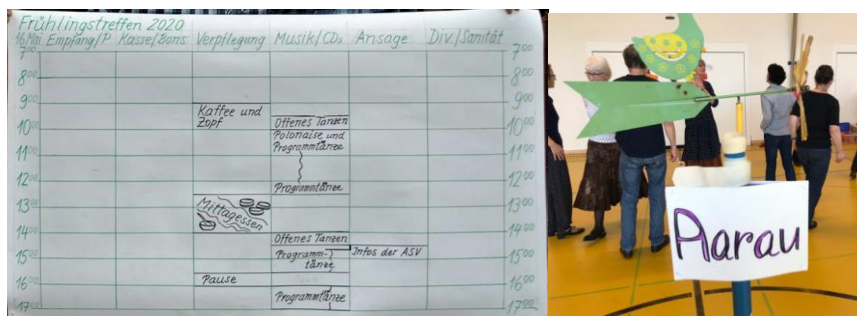 Frühlingstreffen 2020
16. Mai Empfang/P Kasse/Bons Verpflegung Musik/CDs Ansage Div./Sanität
7⁰⁰ 7⁰⁰
8⁰⁰ 8⁰⁰
9⁰⁰ 9⁰⁰
Kaffee und
Zopf
10⁰⁰ Offenes Tanzen 10⁰⁰
Polonaise und
Programmtänze
11⁰⁰ 11⁰⁰
12⁰⁰ Programmtänze 12⁰⁰
13⁰⁰ Mittagessen 13⁰⁰
14⁰⁰ Offenes Tanzen 14⁰⁰
Infos der ASV
15⁰⁰ Programm- 15⁰⁰
tänze
16⁰⁰ Pause 16⁰⁰
Programmtänze
17⁰⁰ 17⁰⁰
Aarau